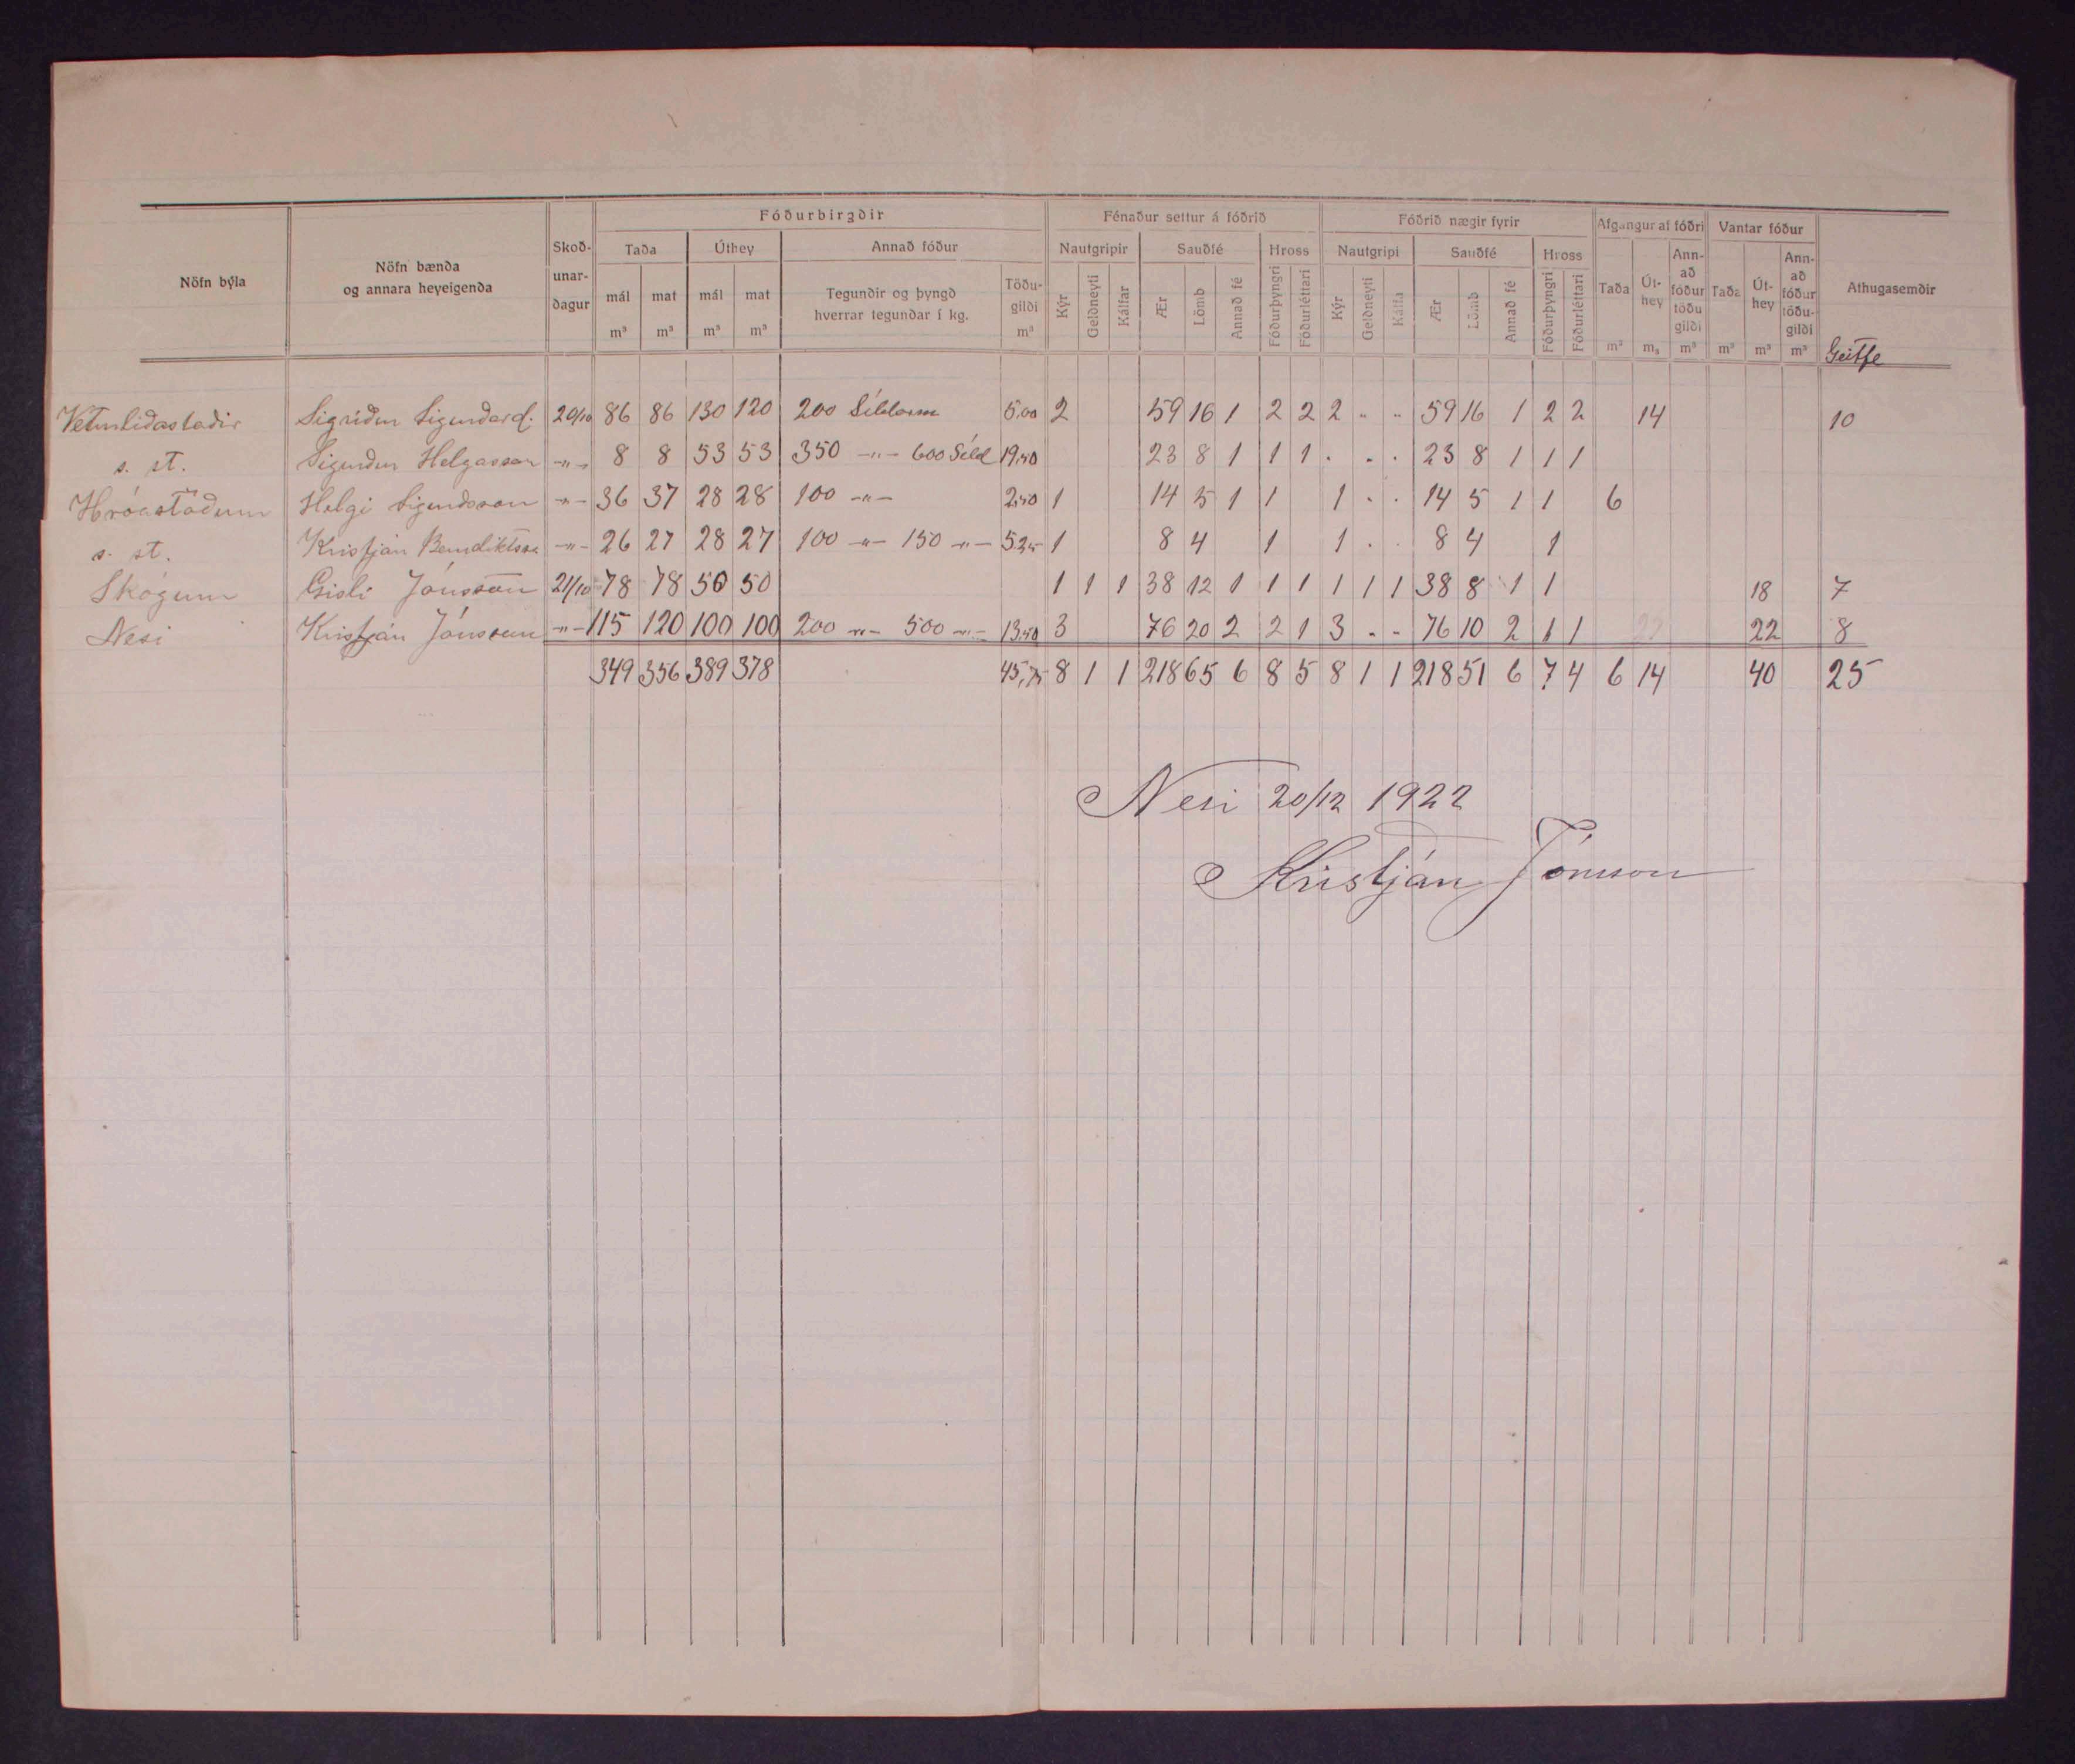 Fóðurbirgðir Fénaður settur á fóðrið Fóðrið nægir fyrir Afgangur af fóðri Vantar fóður
Nöfn býla Nöfn bænda og annara heyeigenda Skoð-unar-dagur Taða Úthey Annað fóður Nautgripir Sauðfé Hross Nautgripi Sauðfé Hross Taða Út-hey Ann-að fóður töðu gildi Taða Út-hey Ann-að fóður töðu-gildi Athugasemdir
mál mat mál mat Tegundir og þyngd hverrar tegundar í kg. Töðu-gildi Kýr Geldneyti Kálfar Ær Lömb Annað fé Fóðurþyngri Fóðurléttari Kýr Geldneyti Kálfa Ær Lömb Annað fé Fóðurþyngri Fóðurléttari
m³ m³ m³ m³ m³ m³ m₃ m³ m³ m³ m³ Geitfe
Sigríður Sigurðard. 20/10 86 86 130 120 200 5.00 2 59 16 1 2 2 2 " " 59 16 1 2 2 14 10
s. st. Sigurður Helgasson -"- 8 8 53 53 350 -"- 600 Síld 19.50 23 8 1 1 1 . . . 23 8 1 1 1
Hróastöðum Helgi Sigurdsson -"- 36 37 28 28 100 -"- 2.50 1 14 5 1 1 1 . . 14 5 1 1 6
s. st. Kristján Benediktsso -"- 26 27 28 27 100 -"- 150 -"- 5.25 1 8 4 1 1 . . 8 4 1
Skógum Gisli Jónsson 21/10 78 78 50 50 1 1 1 38 12 1 1 1 1 1 1 38 8 1 1 18 7
Nesi Kristján Jónsson -"- 115 120 100 100 200 -"- 500 -"- 13.50 3 76 20 2 2 1 3 - - 76 10 2 1 1 22 8
349 356 389 378 45,75 8 1 1 218 65 6 8 5 8 1 1 218 51 6 7 4 6 14 40 25
Nesi 20/12 1922
Kristján Jónsson